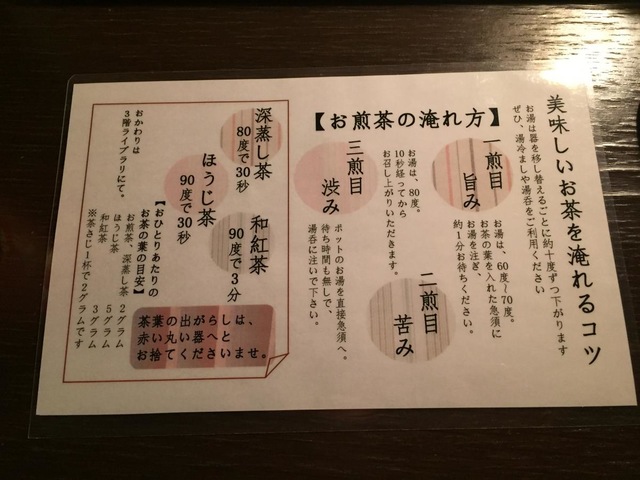 美味しいお茶を淹れるコツ
お湯は器を移し替えるごとに約十度ずつ下がります
ぜひ、湯冷ましや湯呑をご利用ください
【お煎茶の淹れ方】
一煎目
旨み
お湯は、60度~70度。
お茶の葉を入れた急須に
お湯を注ぎ、
約1分お待ちください。
二煎目
苦み
お湯は、80度。
10秒経ってから
お召し上がりいただきます。
三煎目
渋み
ポットのお湯を直接急須へ。
待ち時間も無しで、
湯呑に注いで下さい。
深蒸し茶
80度で30秒
和紅茶
90度で3分
ほうじ茶
90度で30秒
おかわりは
3階ライブラリにて。
【おひとりあたりの
お茶の葉の目安】
お煎茶、深蒸し茶 2グラム
ほうじ茶 5グラム
和紅茶 3グラム
※茶さじ1杯で2グラムです
茶葉の出がらしは、
赤い丸い器へと
お捨てくださいませ。